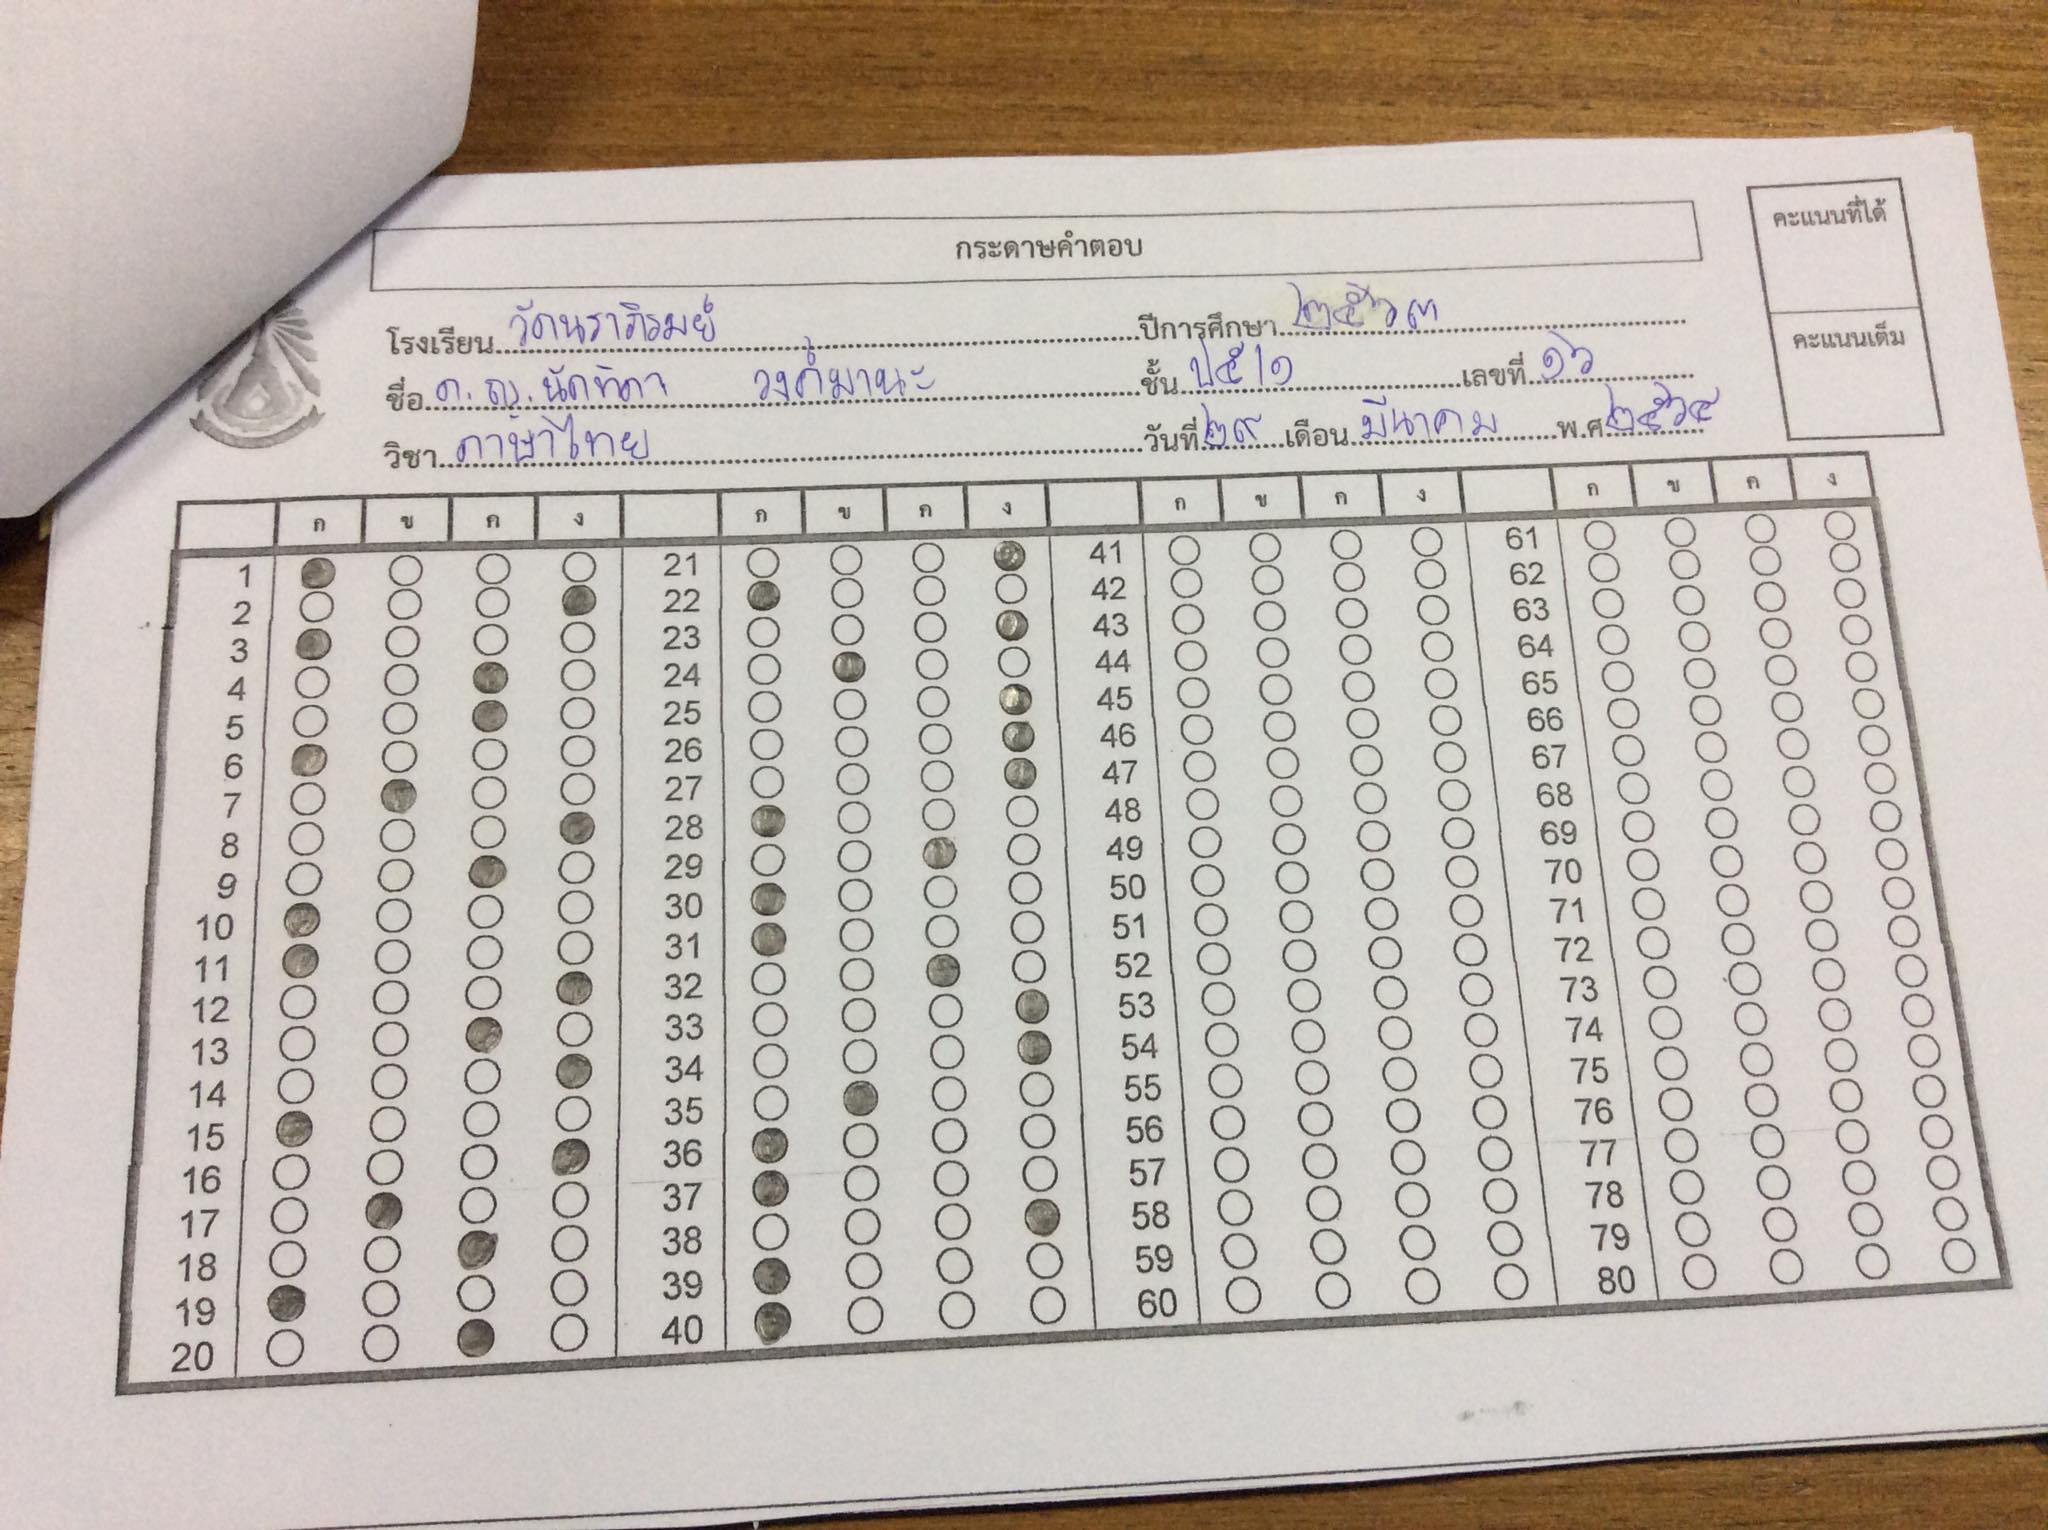 กระดาษคำตอบ
คะแนนที่ได้
คะแนนเต็ม
โรงเรียน วัดนราภิรมย์ ปีการศึกษา ๒๕๖๓
ชื่อ ด.ญ. นัทธิดา วงค์มานะ ชั้น ป๕/๑ เลขที่ ๑๖
วิชา ภาษาไทย วันที่ ๒๙ เดือน มีนาคม พ.ศ ๒๕๖๔
ก ข ค ง ก ข ค ง ก ข ค ง ก ข ค ง
1 21 41 61
2 22 42 62
3 23 43 63
4 24 44 64
5 25 45 65
6 26 46 66
7 27 47 67
8 28 48 68
9 29 49 69
10 30 50 70
11 31 51 71
12 32 52 72
13 33 53 73
14 34 54 74
15 35 55 75
16 36 56 76
17 37 57 77
18 38 58 78
19 39 59 79
20 40 60 80